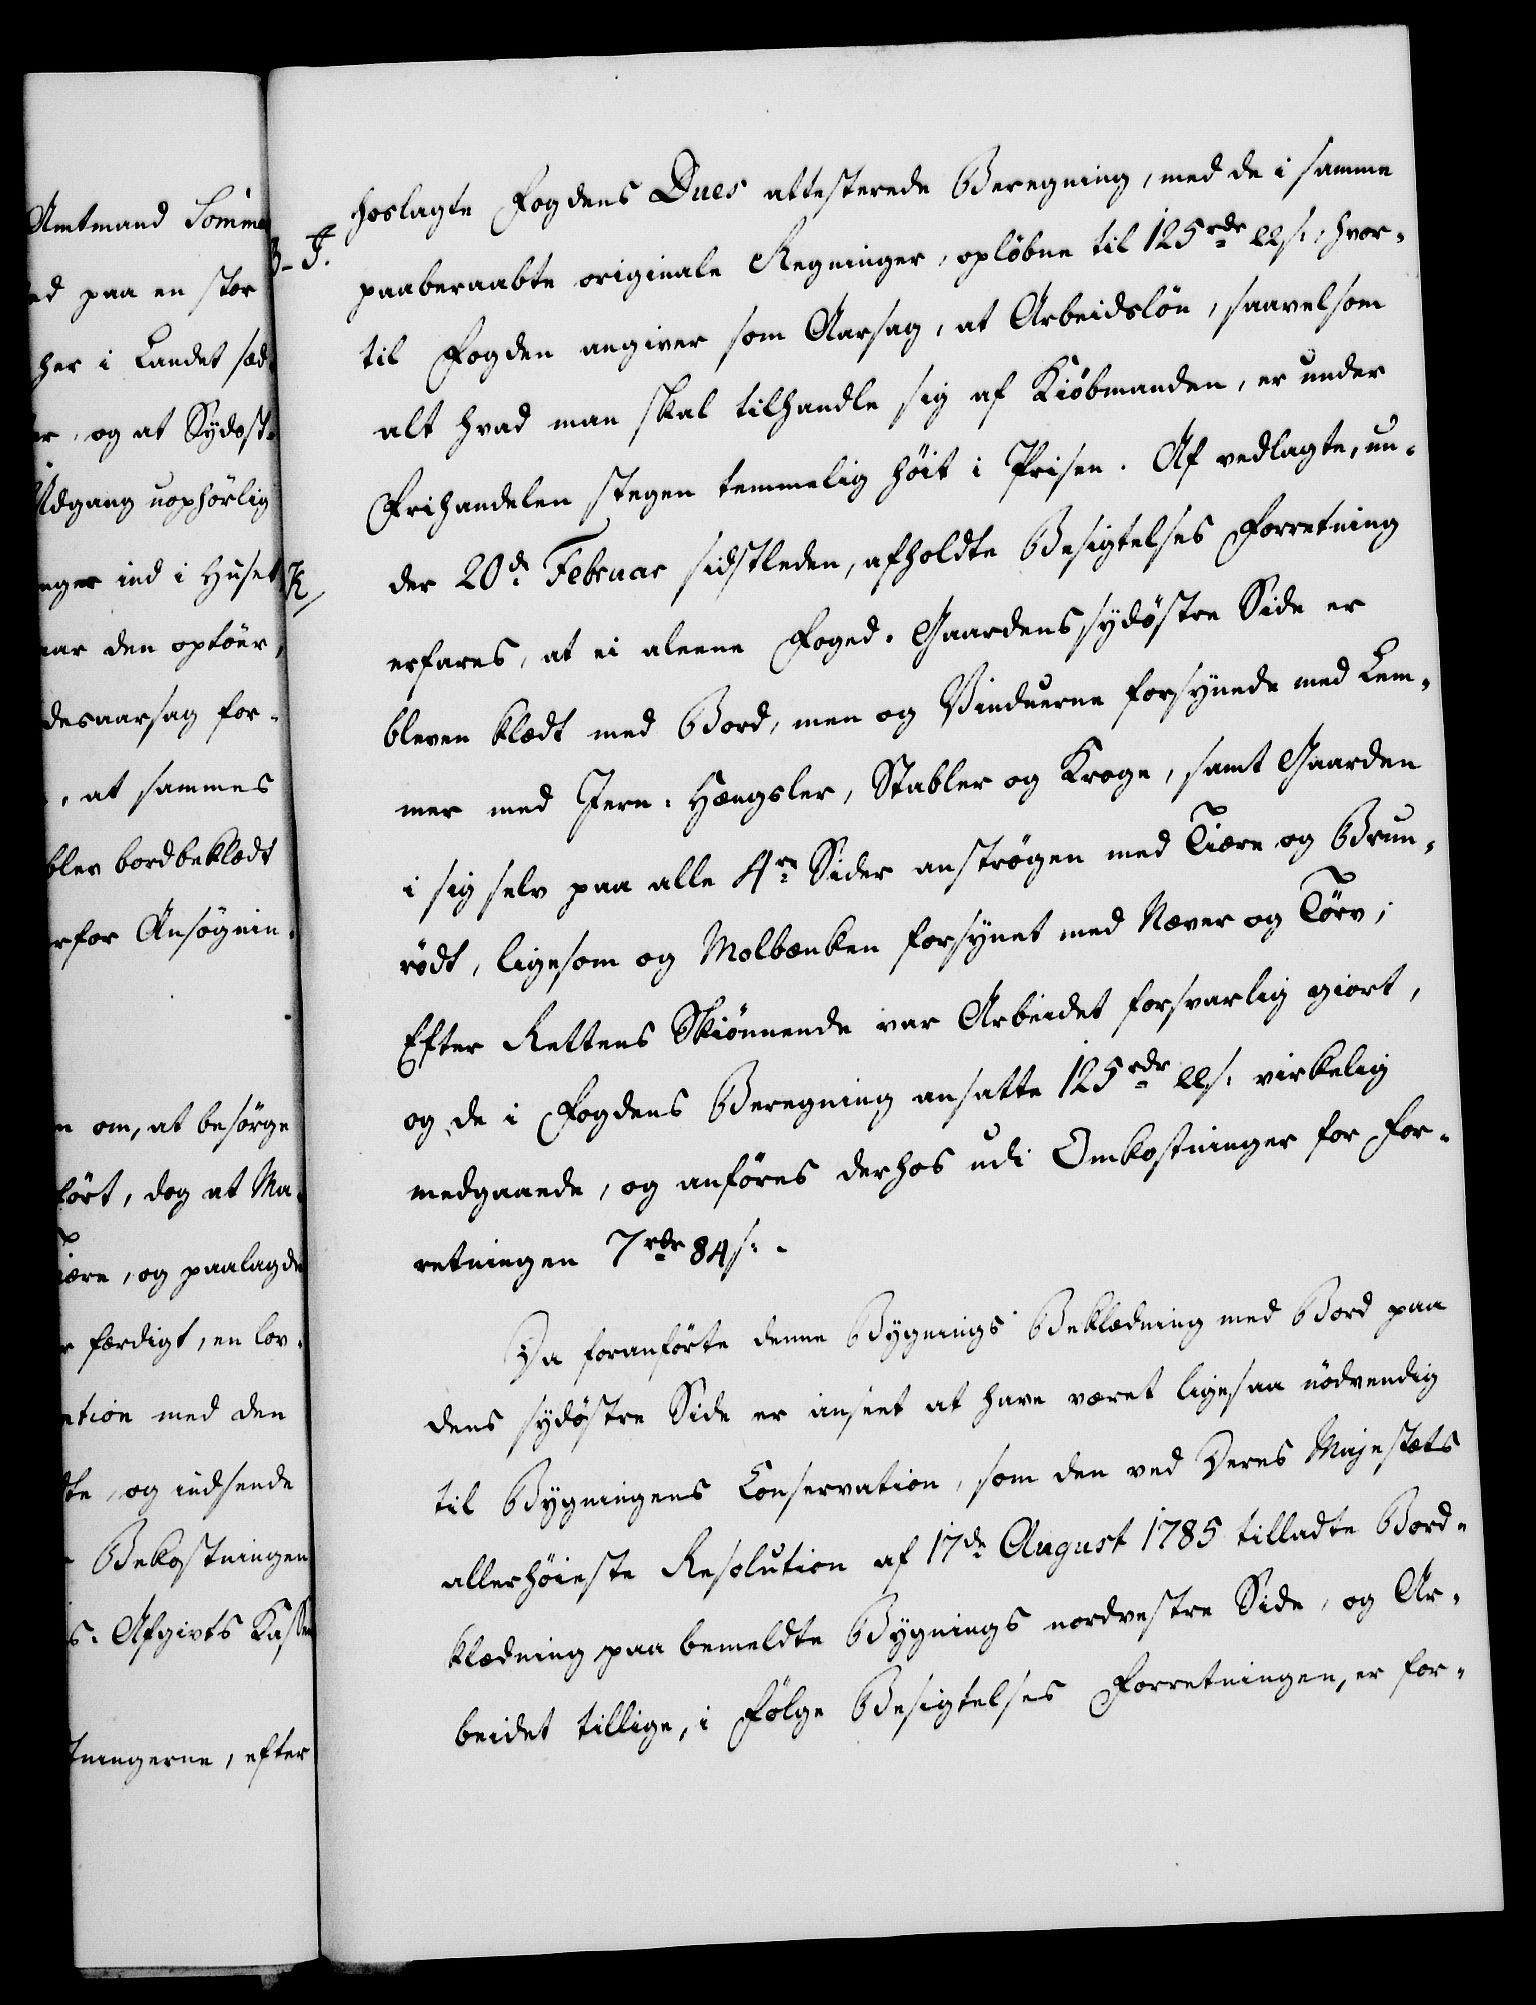 Amtmand Somme
ed paa en stor
her i Landet sæd
er, og at Sydost-
Udgang uophørlig
nger ind i Huset
aar den optöer,
desaarsag for-
, at sammes
blev bordbeklædt
rfor Ansøgnin-
n om, at besörge
fört, dog at Ma-
Tiære, og paalagde
r færdigt, en lov-
ation med den
dte, og indsende
Bekostningen
s: Afgivts Kasse
tningerne, efter
B-J.
K
hoslagte Fogdens Dues attesterede Beregning, med de i samme
paaberaabte originale Regninger, oplöbne til 125 rdr 22 s.; hvor-
til Fogden angiver som Aarsag, at Arbeidslön, saavelsom
alt hvad man skal tilhandle sig af Kiöbmanden, er under
Frihandelen stegen temmelig höit i Prisen. Af vedlagte, un-
der 20de Februar sidstleden, afholdte Besigtelses Forretning
erfares, at ei aleene Foged-Gaardens sydöstre Side er
bleven klædt med Bord, men og Vinduerne forsynede med Lem-
mer med Jern-Hængsler, Stabler og Kroge, samt Gaarden
i sig selv paa alle 4re Sider anströgen med Tiære og Brun-
rödt, ligesom og Molbænken forsynet med Næver og Törv;
Efter Rettens Skiönnende var Arbeidet forsvarlig giort,
og de i Fogdens Beregning ansatte 125 rdr 22 s: virkelig
medgaaede, og anföres derhos udi Omkostninger for For-
retningen 7 rdr 84 s:.
Da foranförte denne Bygnings Beklædning med Bord paa
dens sydöstre Side er anseet at have været ligesaa nödvendig
til Bygningens Conservation, som den ved Deres Majestæts
allerhöieste Resolution af 17de August 1785 tilladte Bord-
klædning paa bemeldte Bygnings nordvestre Side, og Ar-
beidet tillige, i Fölge Besigtelses Forretningen, er for-